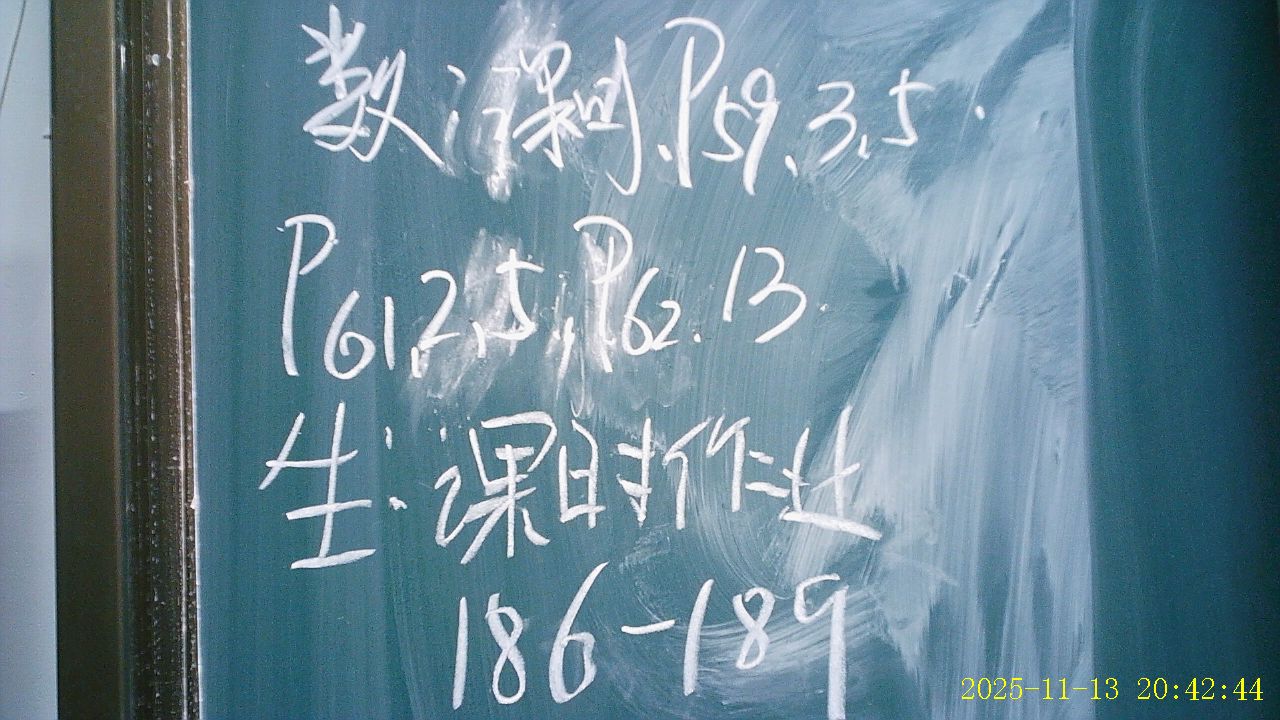 数:课时.P59.3.5.
P61,2,5,P62.13.
生:课时作业
186-189
2025-11-13 20:42:44